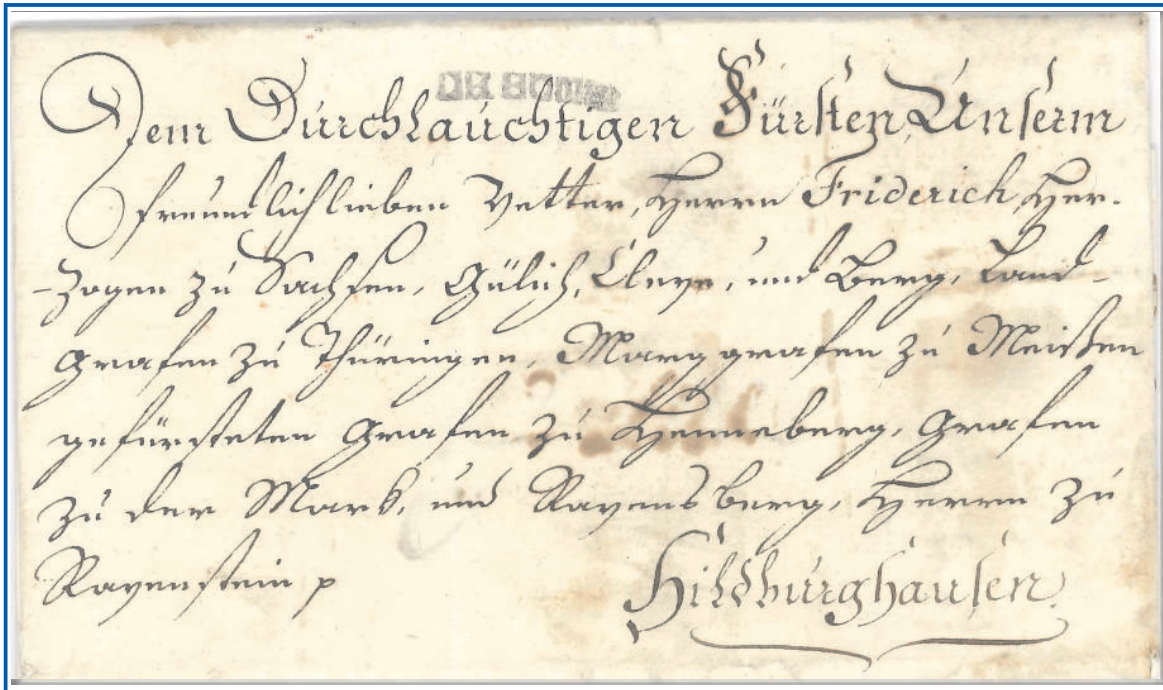 Dem Durchlauchtigen Fürsten, Unserm
freundlichlieben Vetter, Herrn Friderich, Her-
-zogen zu Sachsen, Gülich, Cleve, und Berg, Land-
grafen zu Thüringen, Marggrafen zu Meißen
gefürsteten Grafen zu Henneberg, Grafen
zu der Mark, und Ravensberg, Herrn zu
Ravenstein p
Hildburghausen